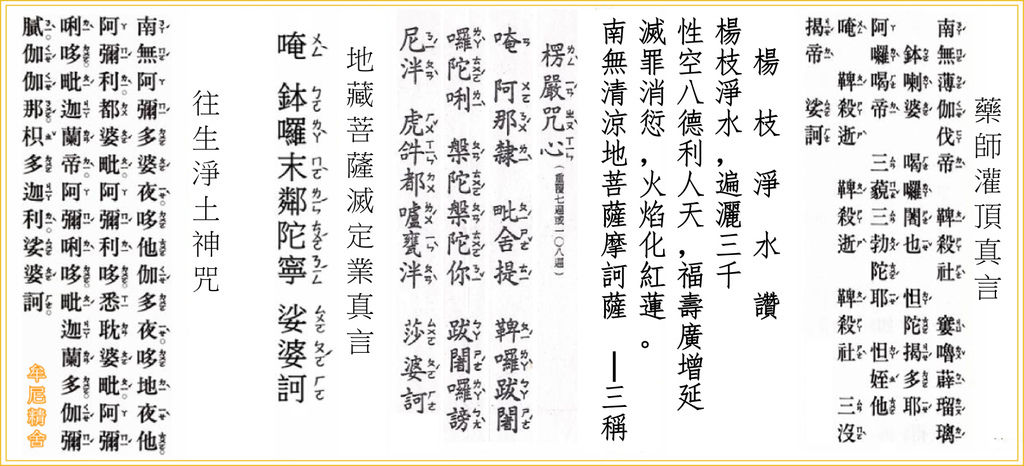 藥師灌頂真言
南無薄伽伐帝　鞞殺社　窶嚕薜瑠璃
鉢喇婆　喝囉闍也　怛陀揭多耶
阿囉喝帝　三藐三勃陀耶　怛姪他
唵　鞞殺逝　鞞殺逝　鞞殺社　三沒
揭帝　娑訶
楊枝淨水讚
楊枝淨水，遍灑三千
性空八德利人天，福壽廣增延
滅罪消愆，火焰化紅蓮。
南無清涼地菩薩摩訶薩　—三稱
楞嚴咒心（重覆七遍或一０八遍）
唵　阿那隸　毗舍提　鞞囉跋闍
囉陀唎　槃陀槃陀你　跋闍囉謗
尼泮　虎𤙖都嚧甕泮　莎婆訶
地藏菩薩滅定業真言
唵　鉢囉末鄰陀寧　娑婆訶
往生淨土神咒
南無阿彌多婆夜哆他伽多夜哆地夜他
阿彌利都婆毗阿彌利哆悉耽婆毗阿彌
唎哆毗迦蘭帝阿彌唎哆毗迦蘭多伽彌
膩伽伽那枳多迦利娑婆訶
牟尼精舍